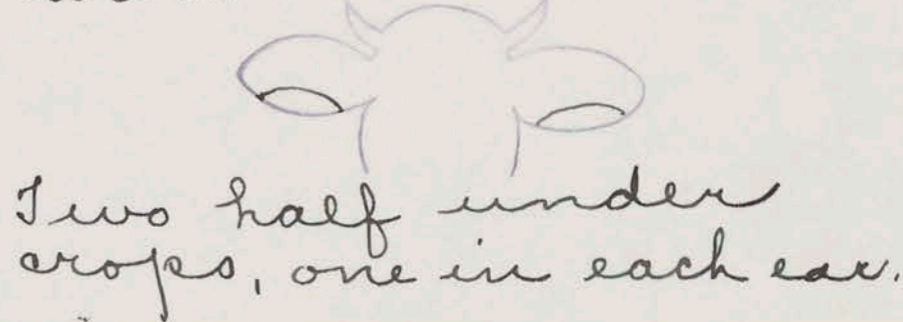 Two half under
crops, one in each ear.